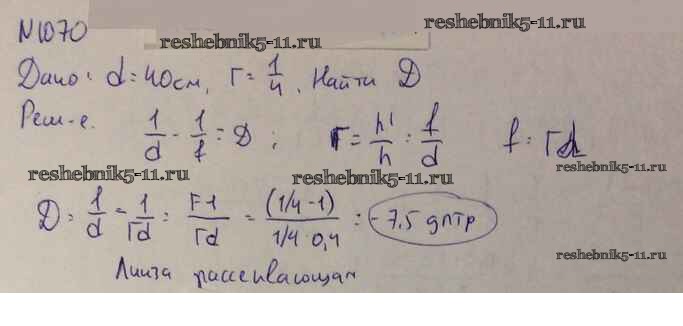 N1070
reshebnik5-11.ru
reshebnik5-11.ru
Дано: d = 40 см, Г = 1/4. Найти D
Реш-е. 1/d - 1/f = D ; Г = h'/h = f/d f = Гd
reshebnik5-11.ru
reshebnik5-11.ru
reshebnik5-11.ru
D = 1/d - 1/Гd = Г-1/Гd = (1/4 - 1)/1/4 · 0,4 = -7.5 дптр
reshebnik5-11.ru
Линза рассеивающая